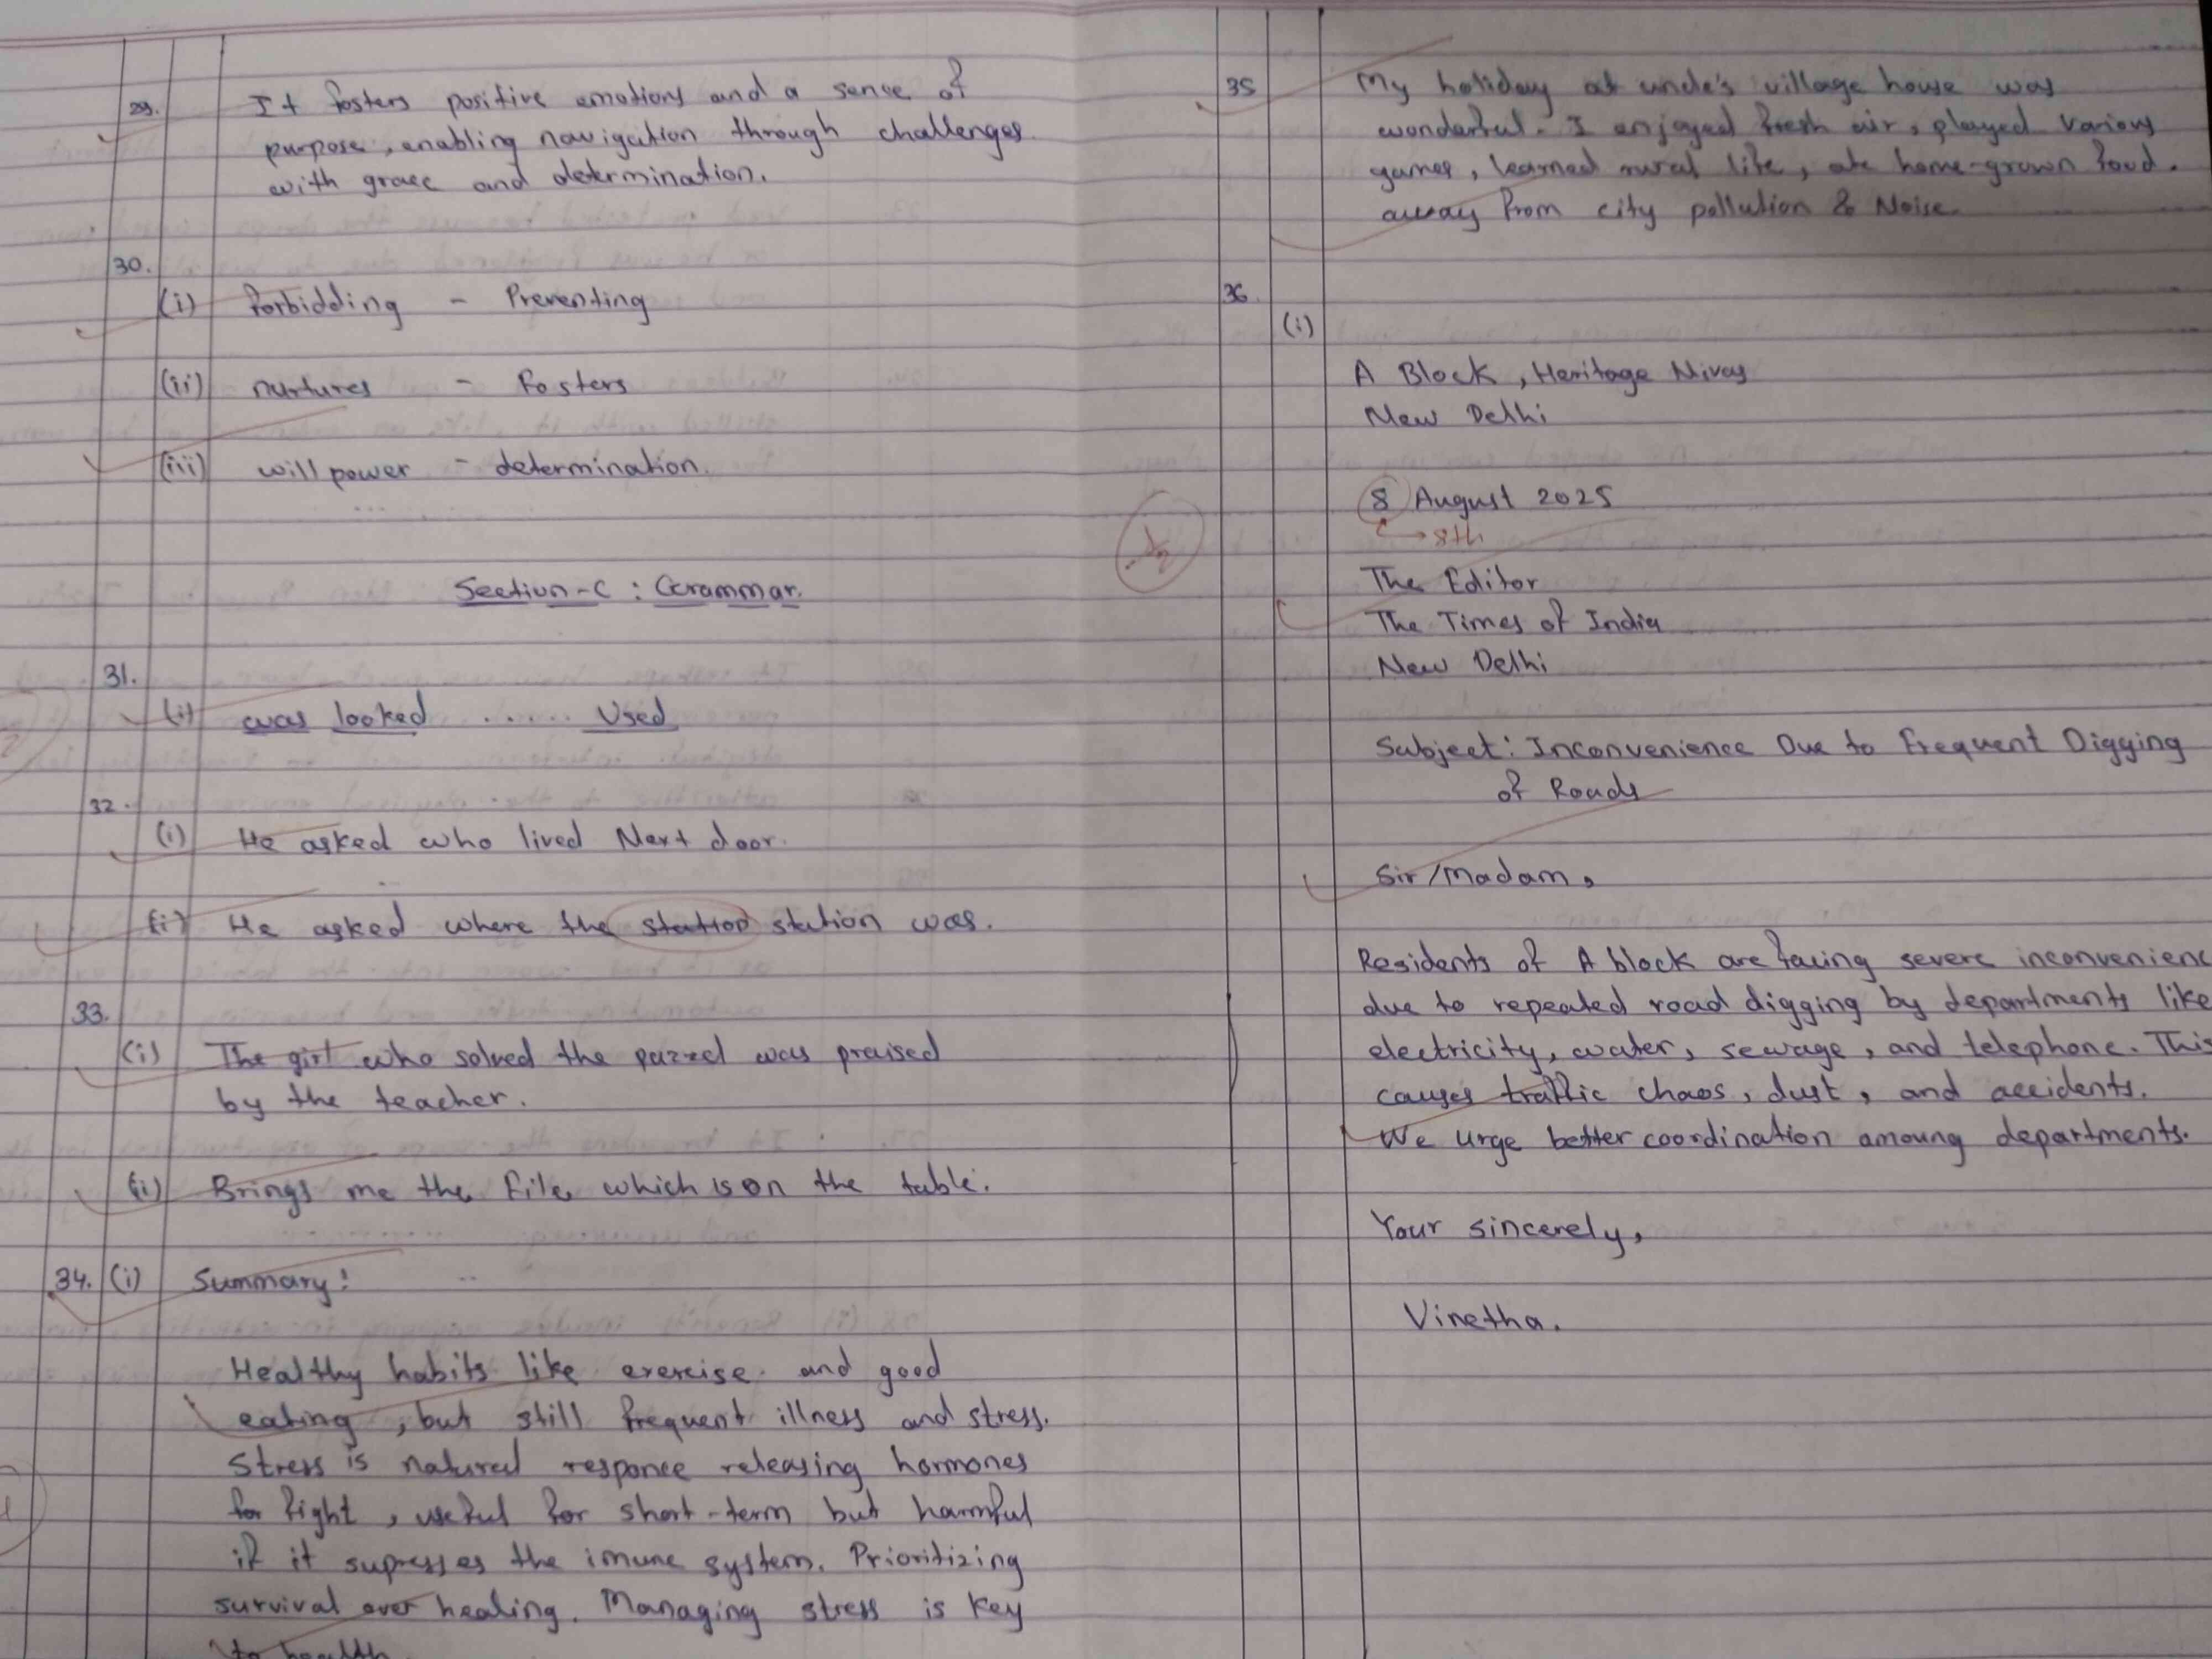 29. It fosters positive emotions and a sense of
purpose, enabling navigation through challenges
with grace and determination.
30.
(i) forbidding - Preventing
(ii) nurtures - Fosters
(iii) will power - determination.
Section-C : Grammar.
31.
(i) was looked ..... Used
32.
(i) He asked who lived Next door.
(ii) He asked where the station station was.
33.
(i) The girl who solved the puzzel was praised
by the teacher.
(ii) Brings me the file which is on the table.
34. (i) Summary:
Healthy habits like exercise and good
eating, but still frequent illness and stress.
Stress is natural responce releasing hormones
for fight, useful for short-term but harmful
if it supresses the imune system. Prioritizing
survival over healing. Managing stress is key
to health
35 My holiday at uncle's village house was
wonderful. I enjoyed fresh air, played various
games, learned rural life, ate home-grown food.
away from city pollution & Noise.
36.
(i)
A Block, Heritage Nivas
New Delhi
8 August 2025
8th
The Editor
The Times of India
New Delhi
Subject: Inconvenience Due to Frequent Digging
of Roads
Sir/Madam,
Residents of A block are facing severe inconvenienc
due to repeated road digging by departments like
electricity, water, sewage, and telephone. This
causes traffic chaos, dust, and accidents.
We urge better coordination amoung departments.
Your sincerely,
Vinetha.